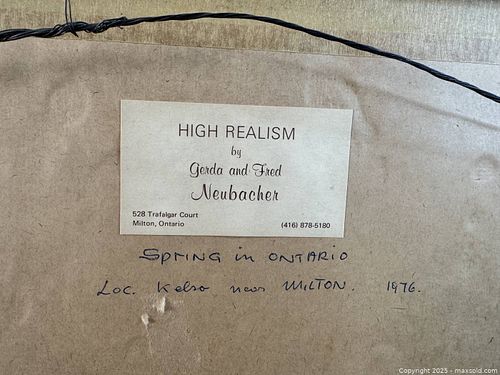 HIGH REALISM
by
Gerda and Fred
Neubacher
528 Trafalgar Court
Milton, Ontario
(416) 878-5180
SPRING in ONTARIO
Loc. Kelso near MILTON. 1976.
Copyright 2025 - maxsold.com